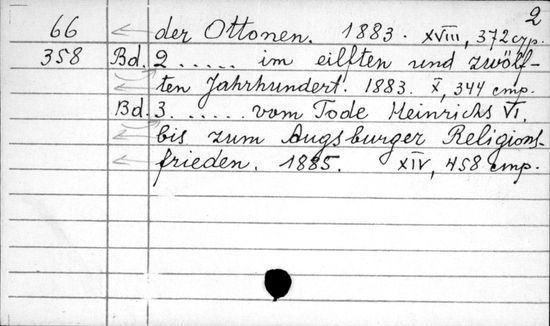 2
66 der Ottonen. 1883. XVIII, 372 стр.
358 Bd. 2 ..... im eilften und zwölf-
ten Jahrhundert. 1883. X, 344 стр.
Bd. 3. ..... vom Tode Heinrichs VI.
bis zum Augsburger Religions-
frieden. 1885. XIV, 458 стр.